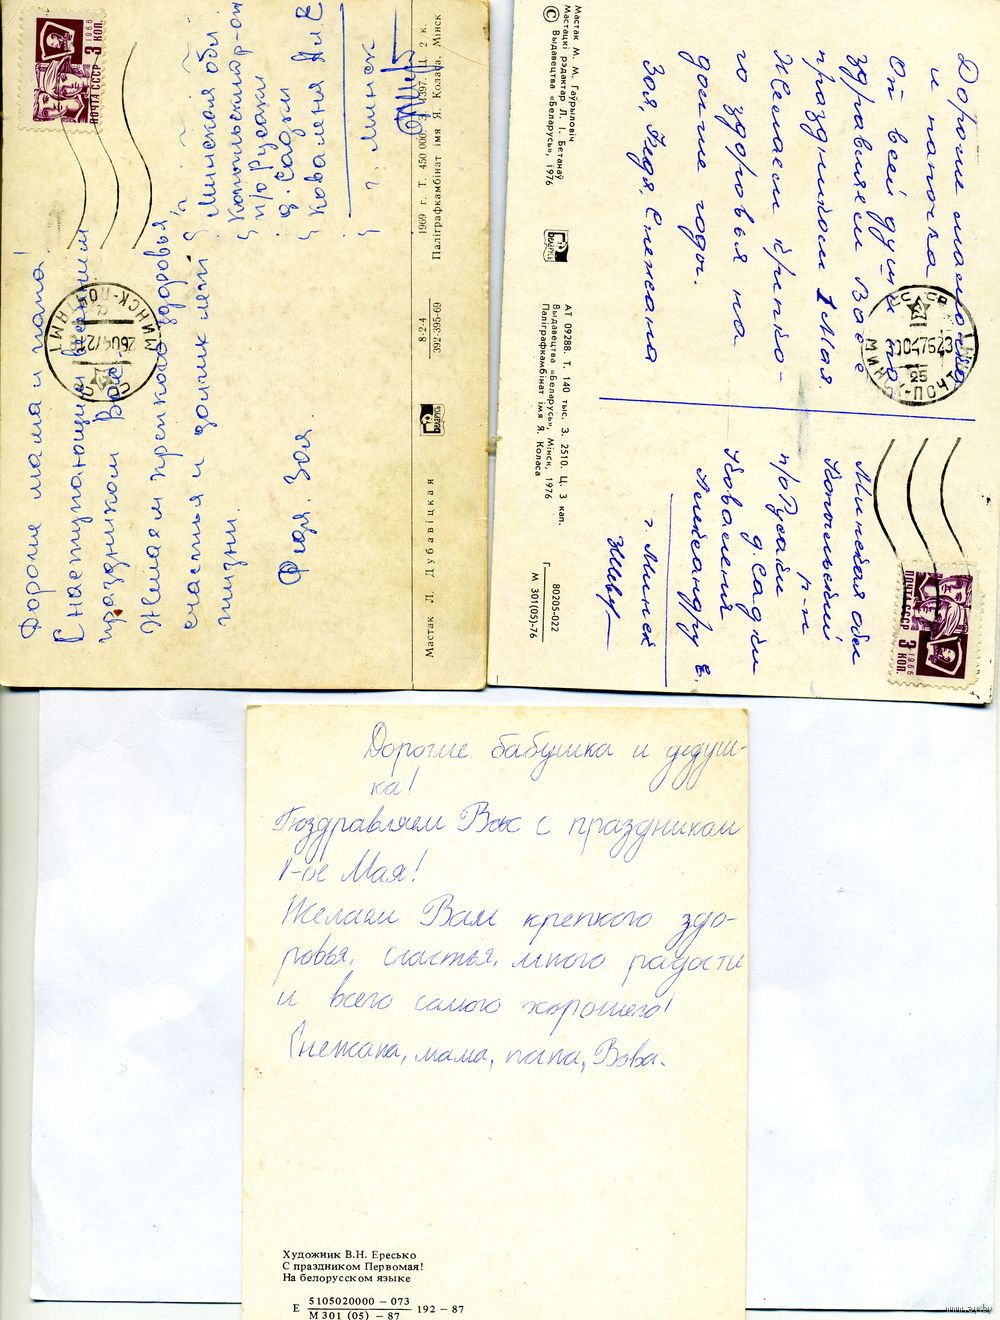 Дорогие мама и папа!
С наступающим весенним
праздником Вас.
Желаем крепкого здоровья
счастья и долгих лет
жизни.
Федя. Зоя.
Минская обл.
Копыльский р-он
п/о Русаки
д. Садки
Коваленя
г. Минск
ПОЧТА СССР 3 КОП.
1966
МИНСК-ПОЧТАМТ
СССР
Мастак Л. Дубавіцкая
8-2-4
392-395-69
1969 г. Т. 450 000 З. 1397. Ц. 2 к.
Паліграфкамбінат імя Я. Коласа. Мінск
Беларусь
Дорогие мамочка
и папочка
От всей души по-
здравляем Вас с
праздником 1 Мая
Желаем крепко-
го здоровья на
долгие годы.
Зоя, Федя, Снежана
Минская обл
Копыльский
р-н
п/о Русаки
д. Садки
Коваленя
Александру Е.
г. Минск
ПОЧТА СССР
1966
3 КОП.
СССР
МИНСК-ПОЧТАМТ
25
Мастак М. М. Гаўрыловіч
Мастацкі рэдактар Л. І. Бетанаў
© Выдавецтва «Беларусь», 1976
Беларусь
АТ 09288. Т. 140 тыс. З. 2510. Ц. 3 кап.
Выдавецтва «Беларусь», Мінск, 1976
Паліграфкамбінат імя Я. Коласа
80205-022
М 301(05)-76
Дорогие бабушка и дедуш-
ка!
Поздравляем Вас с праздником
1-ое Мая!
Желаем Вам крепкого здо-
ровья, счастья, много радости
и всего самого хорошего!
Снежана, мама, папа, Вова.
Художник В.Н. Ересько
С праздником Первомая!
На белорусском языке
Е 5105020000 – 073 192 – 87
М 301 (05) – 87